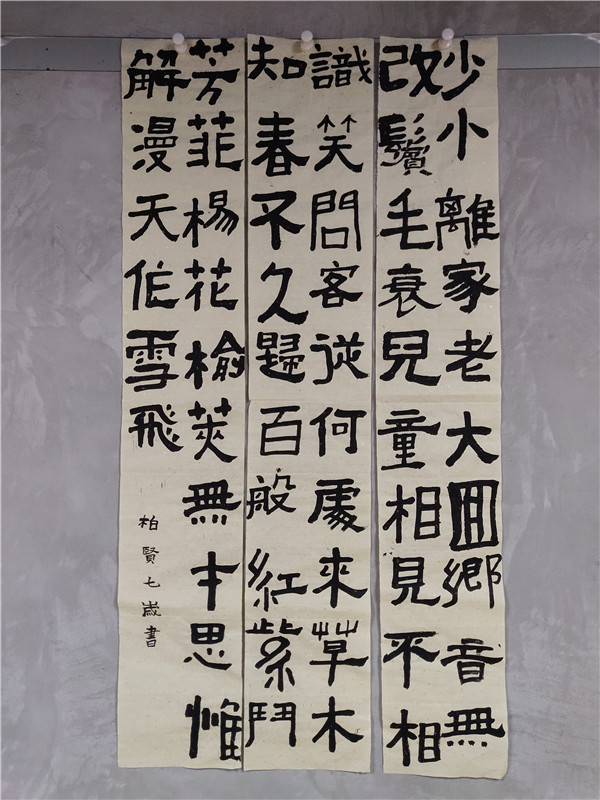 少小離家老大回鄉音無
改鬢毛衰兒童相見不相
識笑問客從何處來草木
知春不久歸百般紅紫鬥
芳菲楊花榆莢無才思惟
解漫天作雪飛
柏賢七歲書